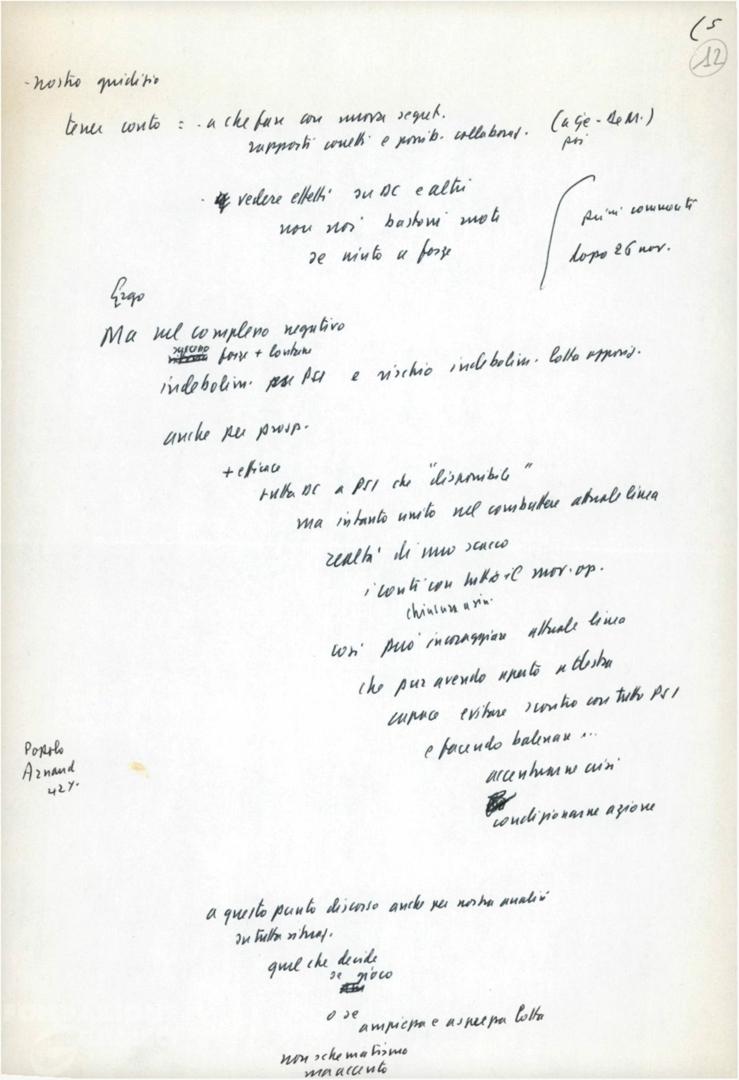 (5
12
- nostro giudizio
tener conto = - a che fare con nuova segret.
rapporti corretti e possib. collaboraz. (a Ge - De M.)
poi
vedere effetti su DC e altri
non noi bastoni mote
se vinto a forze
primi commenti
dopo 26 nov.
Ergo
Ma nel complesso negativo
forze + lontane
indebolim. PSI e rischio indebolim. lotta opposiz.
anche per prosp.
+ efficace
tutta DC a PSI che "disponibile"
ma intanto unito nel combattere attuale linea
realtà di uno scacco
i conti con tutto il mov. op.
chiusura a sin.
così può incoraggiare attuale linea
che pur avendo aperto a destra
capace evitare scontro con tutto PSI
e facendo balenare ...
accentuarne crisi
condizionarne azione
Popolo
Arnaud
42%.
a questo punto discorso anche per nostra analisi
su tutta situaz.
quel che decide
se gioco
o se
ampiezza e asprezza lotta
non schematismo
ma accento